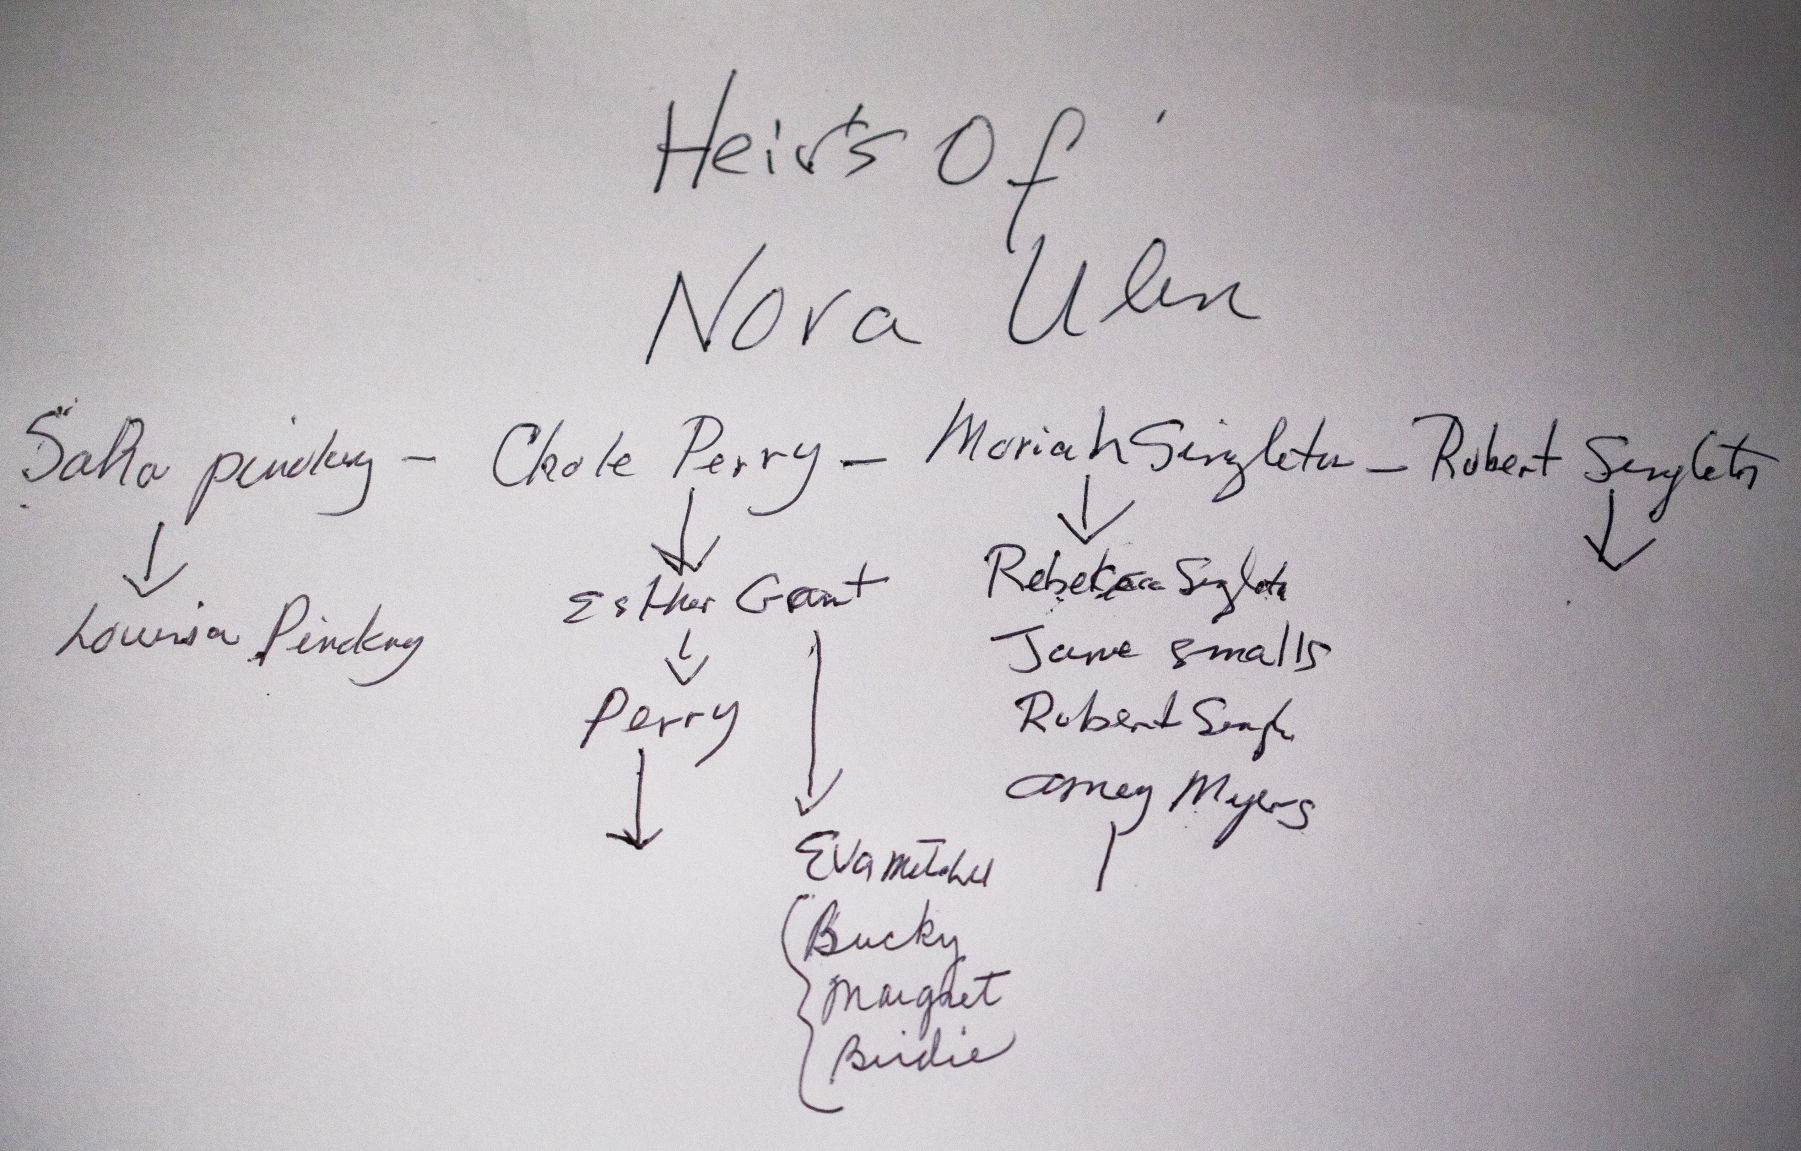 Heirs Of
Nora Ulen
Pinckney - Chole Perry - Moriah Singleton - Robert Singleton
Louisia Pinckney
Esther Grant
Rebecca Singleton
Jane Smalls
Perry
Robert
Amey Myers
Eva Mitchell
Bucky
Margret
Birdie